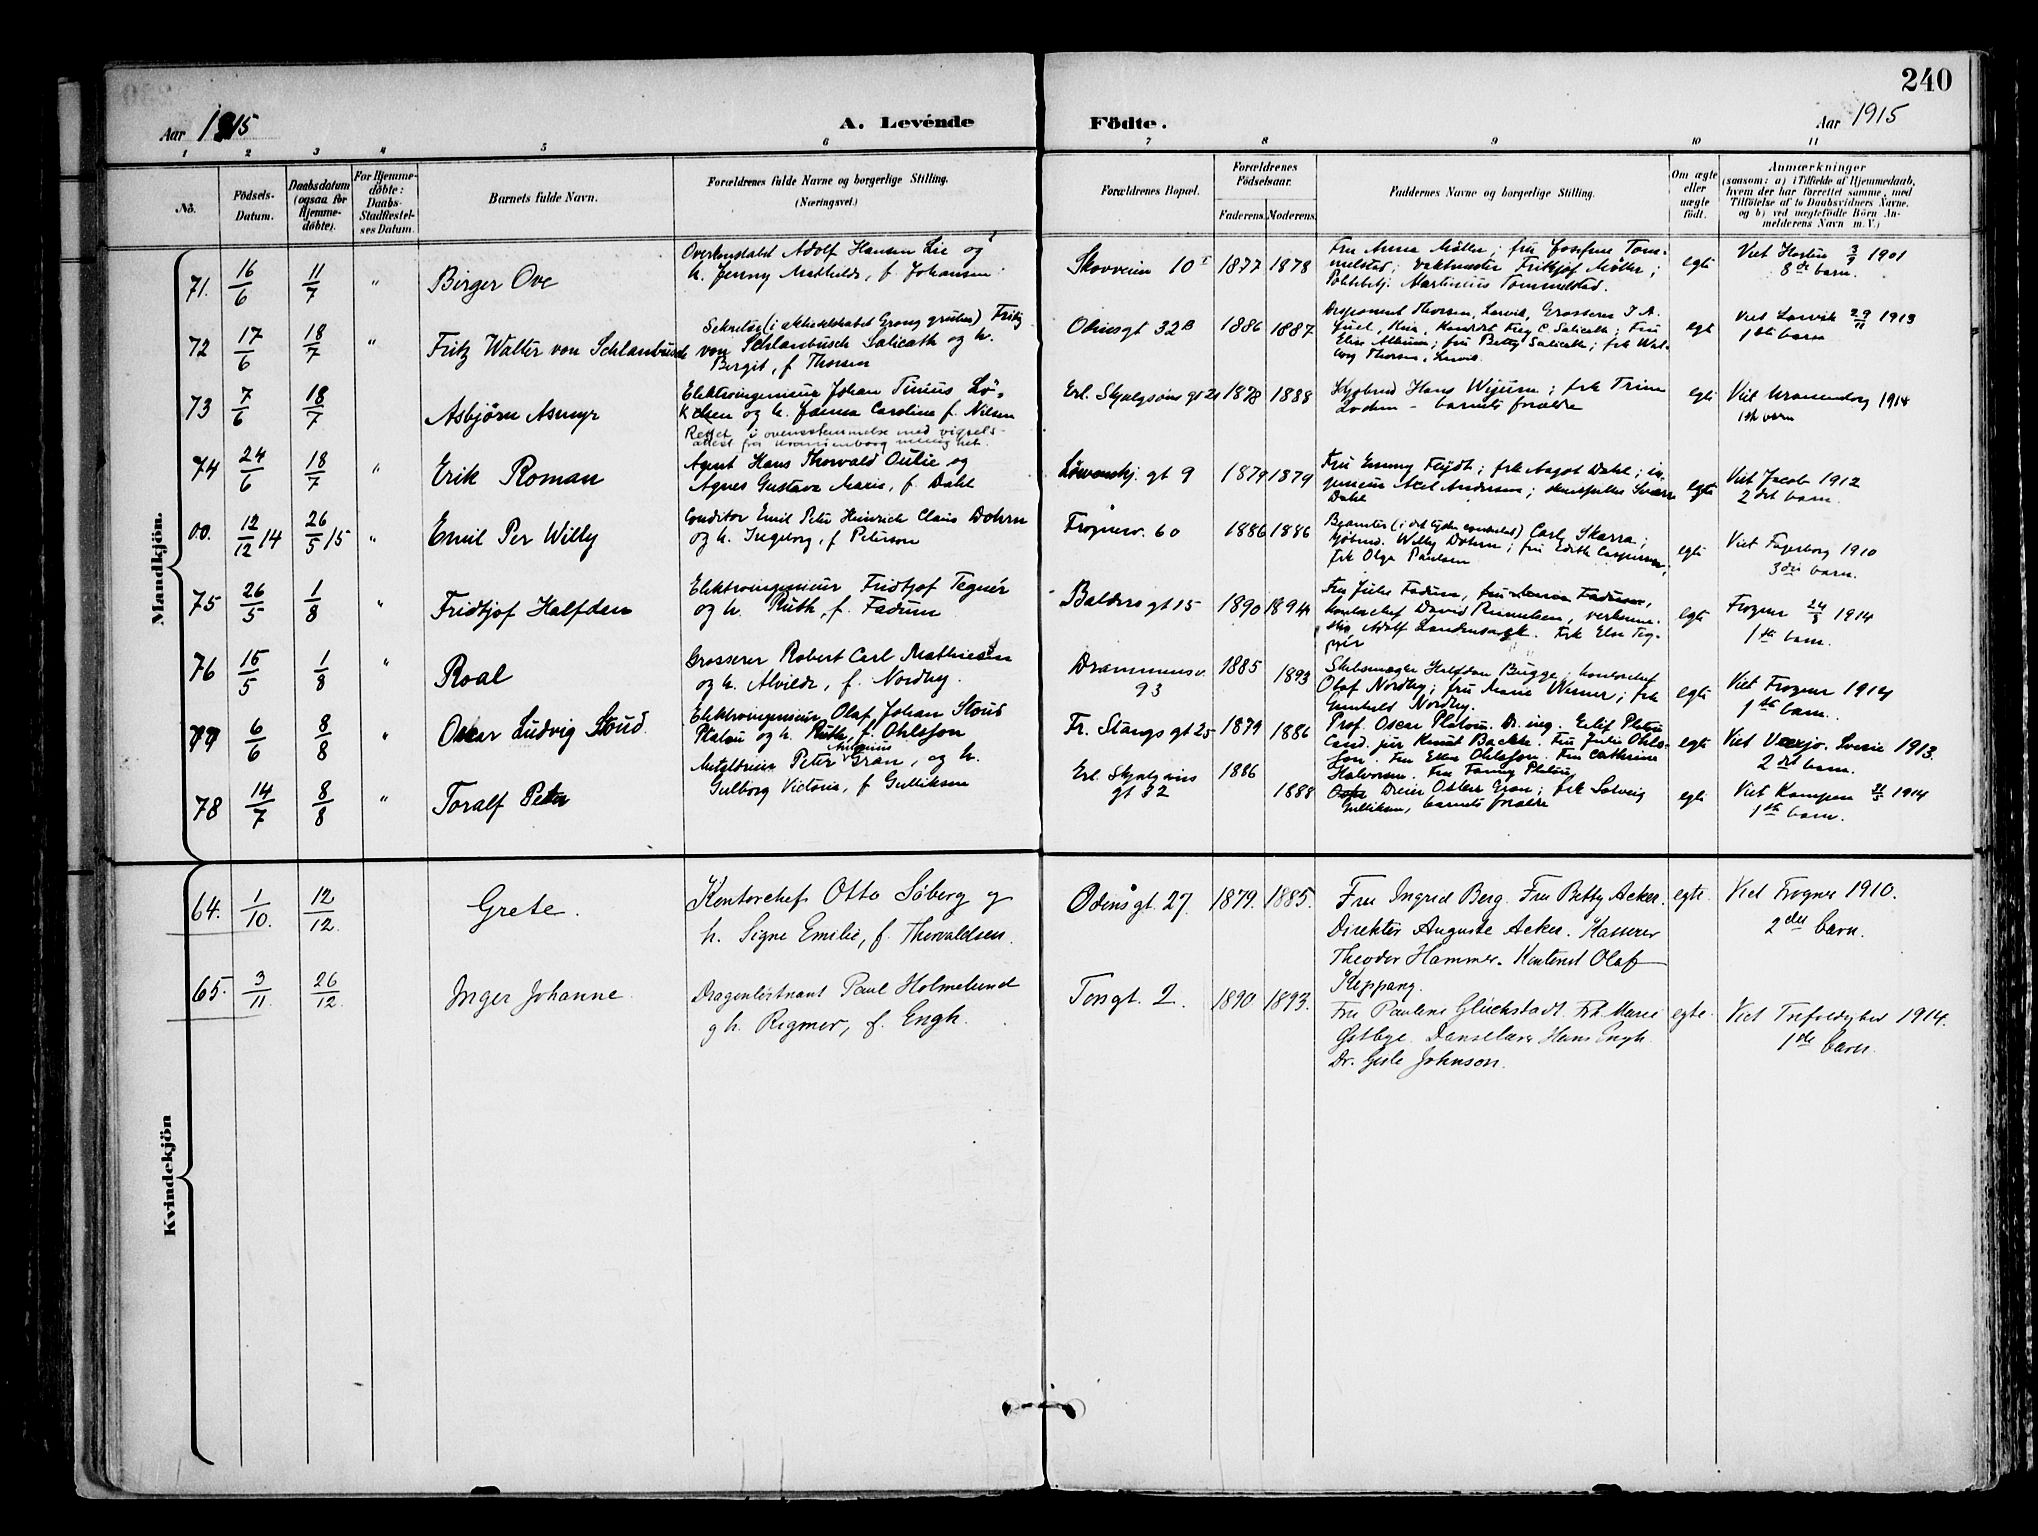 240
Aar 1915
A. Levénde
Födte.
Aar 1915
1 2 3 4 5 6 7 8 9 10 11
No.
Födsels-Datum.
Daabsdatum (ogsaa for Hjemme-döbte).
For Hjemme-döbte: Daabs-Stadfæstel-ses Datum.
Barnets fulde Navn.
Forældrenes fulde Navne og borgerlige Stilling.
(Næringsvei.)
Forældrenes Bopæl.
Forældrenes Födselsaar.
Faderens. Moderens.
Faddernes Navne og borgerlige Stilling.
Om ægte eller uægte födt.
Anmærkninger
(saasom: a) i Tilfælde af Hjemmedaab,
hvem der har forrettet samme, med
Tilföielse af to Daabsvidners Navne.
og b) ved uegtefödte Börn An-
melderens Navn m. V.)
Mandkjön.
71. 16/6 11/7 " Birger Ove
Adolf Hansen Lie og
h. Jenny Mathilde, f. Johansen.
Skovveien 10 I 1877 1878
Fru Anna Møller; fru Josefine Tom-
melstad; vaktmester Fritjof Møller;
Politibtj. Martinius Tommelstad.
egte
Viet Horten 3/9 1901
8de barn.
72 17/6 18/7 " Fritz Walter von Schlanbusch
Sekretær (i aktieselskabet Grong gruber) Fritz
von Schlanbusch Salicath og h.
Birgit, f Thorsen
Odinsgt 32B 1886 1887
Disponent Thorsen, Larvik, Grosserer J. A.
Juel, Fru
Elise; fru Betty Salicath; frk Wal-
borg Thorsen, Larvik.
egt
Viet Larvik 29/11 1913
1ste barn
73 7/6 18/7 Asbjørn Asmyr
Elektroingeniør Johan Tinius Lø-
kken og h. Joenna Caroline f. Nilsen
Rettet i overensstemmelse med vigsels-
attest fra Uranienborg menighet.
Erl. Skjalgsøns gt 21 1878 1888
Hans Wigum; frk Trine
Lochen - barnets forældre
egte
Viet Uranienborg 1914
1ste barn
74 24/6 18/7 " Erik Roman
Agent Hans Thorvald Oulie og
Agnes Gustava Marie, f. Dahl
Løvenskj. gt 9 1879 1879
Fru Emmy Fejdt; frk Aagot Dahl; in-
geniør Axel Andersen; Sverre
Dahl
egte
Viet Jacob 1912
2det barn.
00. 12/12 14 26/5 15 " Emil Per Willy
Conditor Emil Peter Heinrich Claus Dohrn
og h. Ingeborg, f Peterson
Frognerv. 60 1886 1886
Carl Skarra;
Willy Dohrn; fru Edith Caspersen;
frk Olga Paulsen
egte
Viet Fagerborg 1910
3die barn.
75 26/5 1/8 " Fridtjof Halfdan
Elektroingeniør Fridtjof Tegnér
og h. Ruth, f. Fadum
Baldersgt 15 1890 1894
Fru Julie Fadum, fru Fadum,
kontorchef David Rummelhoff,
Adolf Landmark. Frk Else Teg-
nér
egte
Frogner 24/3 1914
1ste barn.
76 15/5 1/8 " Roal
Grosserer Robert Carl Mathiesen
og h. Alvilde, f. Nordby.
Drammensv. 93 1885 1893
Halfdan Bugge, kontorchef
Olaf Nordby; fru Marie Werner; frk
Gunhild Nordby.
egte
Viet Frogner 1914
1ste barn.
77 6/6 8/8 " Oskar Ludvig Stoud.
Elektroingeniør Olaf Johan Stoud
Platou og h. Ruth, f. Ohlsson
Fr. Stangs gt 25 1879 1886
Prof. Oscar Platou. Dr. ing. Eilif Platou
Cand. jur Knut Backe. Fru Julie Ohls-
son. Fru Ellen Ohlsson. Fru Cathrine
Halvorsen. Fru Fanny Platou
egte
Viet Vexjø. Sverie 1913.
2det barn.
78 14/7 8/8 " Toralf Peter
Metaldreier Peter Antonius Gran, og h.
Gulborg Victoria, f Gulliksen
Erl. Skjalgsøns gt 32 1886 1888
Dreier Osker Gran; frk Solveig
Gulliksen, barnets forældre
egte
Viet Kampen 21/5 1914
1ste barn.
Kvindekjön
64. 1/10. 12/12. Grete.
Kontorchef Otto Söberg og
h. Signe Emilie, f. Thorvaldsen.
Odinsgt. 27. 1879. 1885.
Fru Ingrid Berg. Fru Betty Acker.
Direktör Auguste Acker. Kasserer
Theodor Hammer. Kontorist Olaf
Kleppang.
egte.
Viet Frogner 1910.
2det barn.
65. 3/11. 26/12. Inger Johanne.
Dragonløitnant Paul Holmelund
og h. Rigmor, f. Engh.
Torsgt. 2. 1890 1893.
Fru Pauline Glückstadt. Frk. Marie
Østbye. Danselærer Hans Engh.
Dr. Gisle Johnson.
egte.
Viet Trefoldighed 1914.
1ste barn.